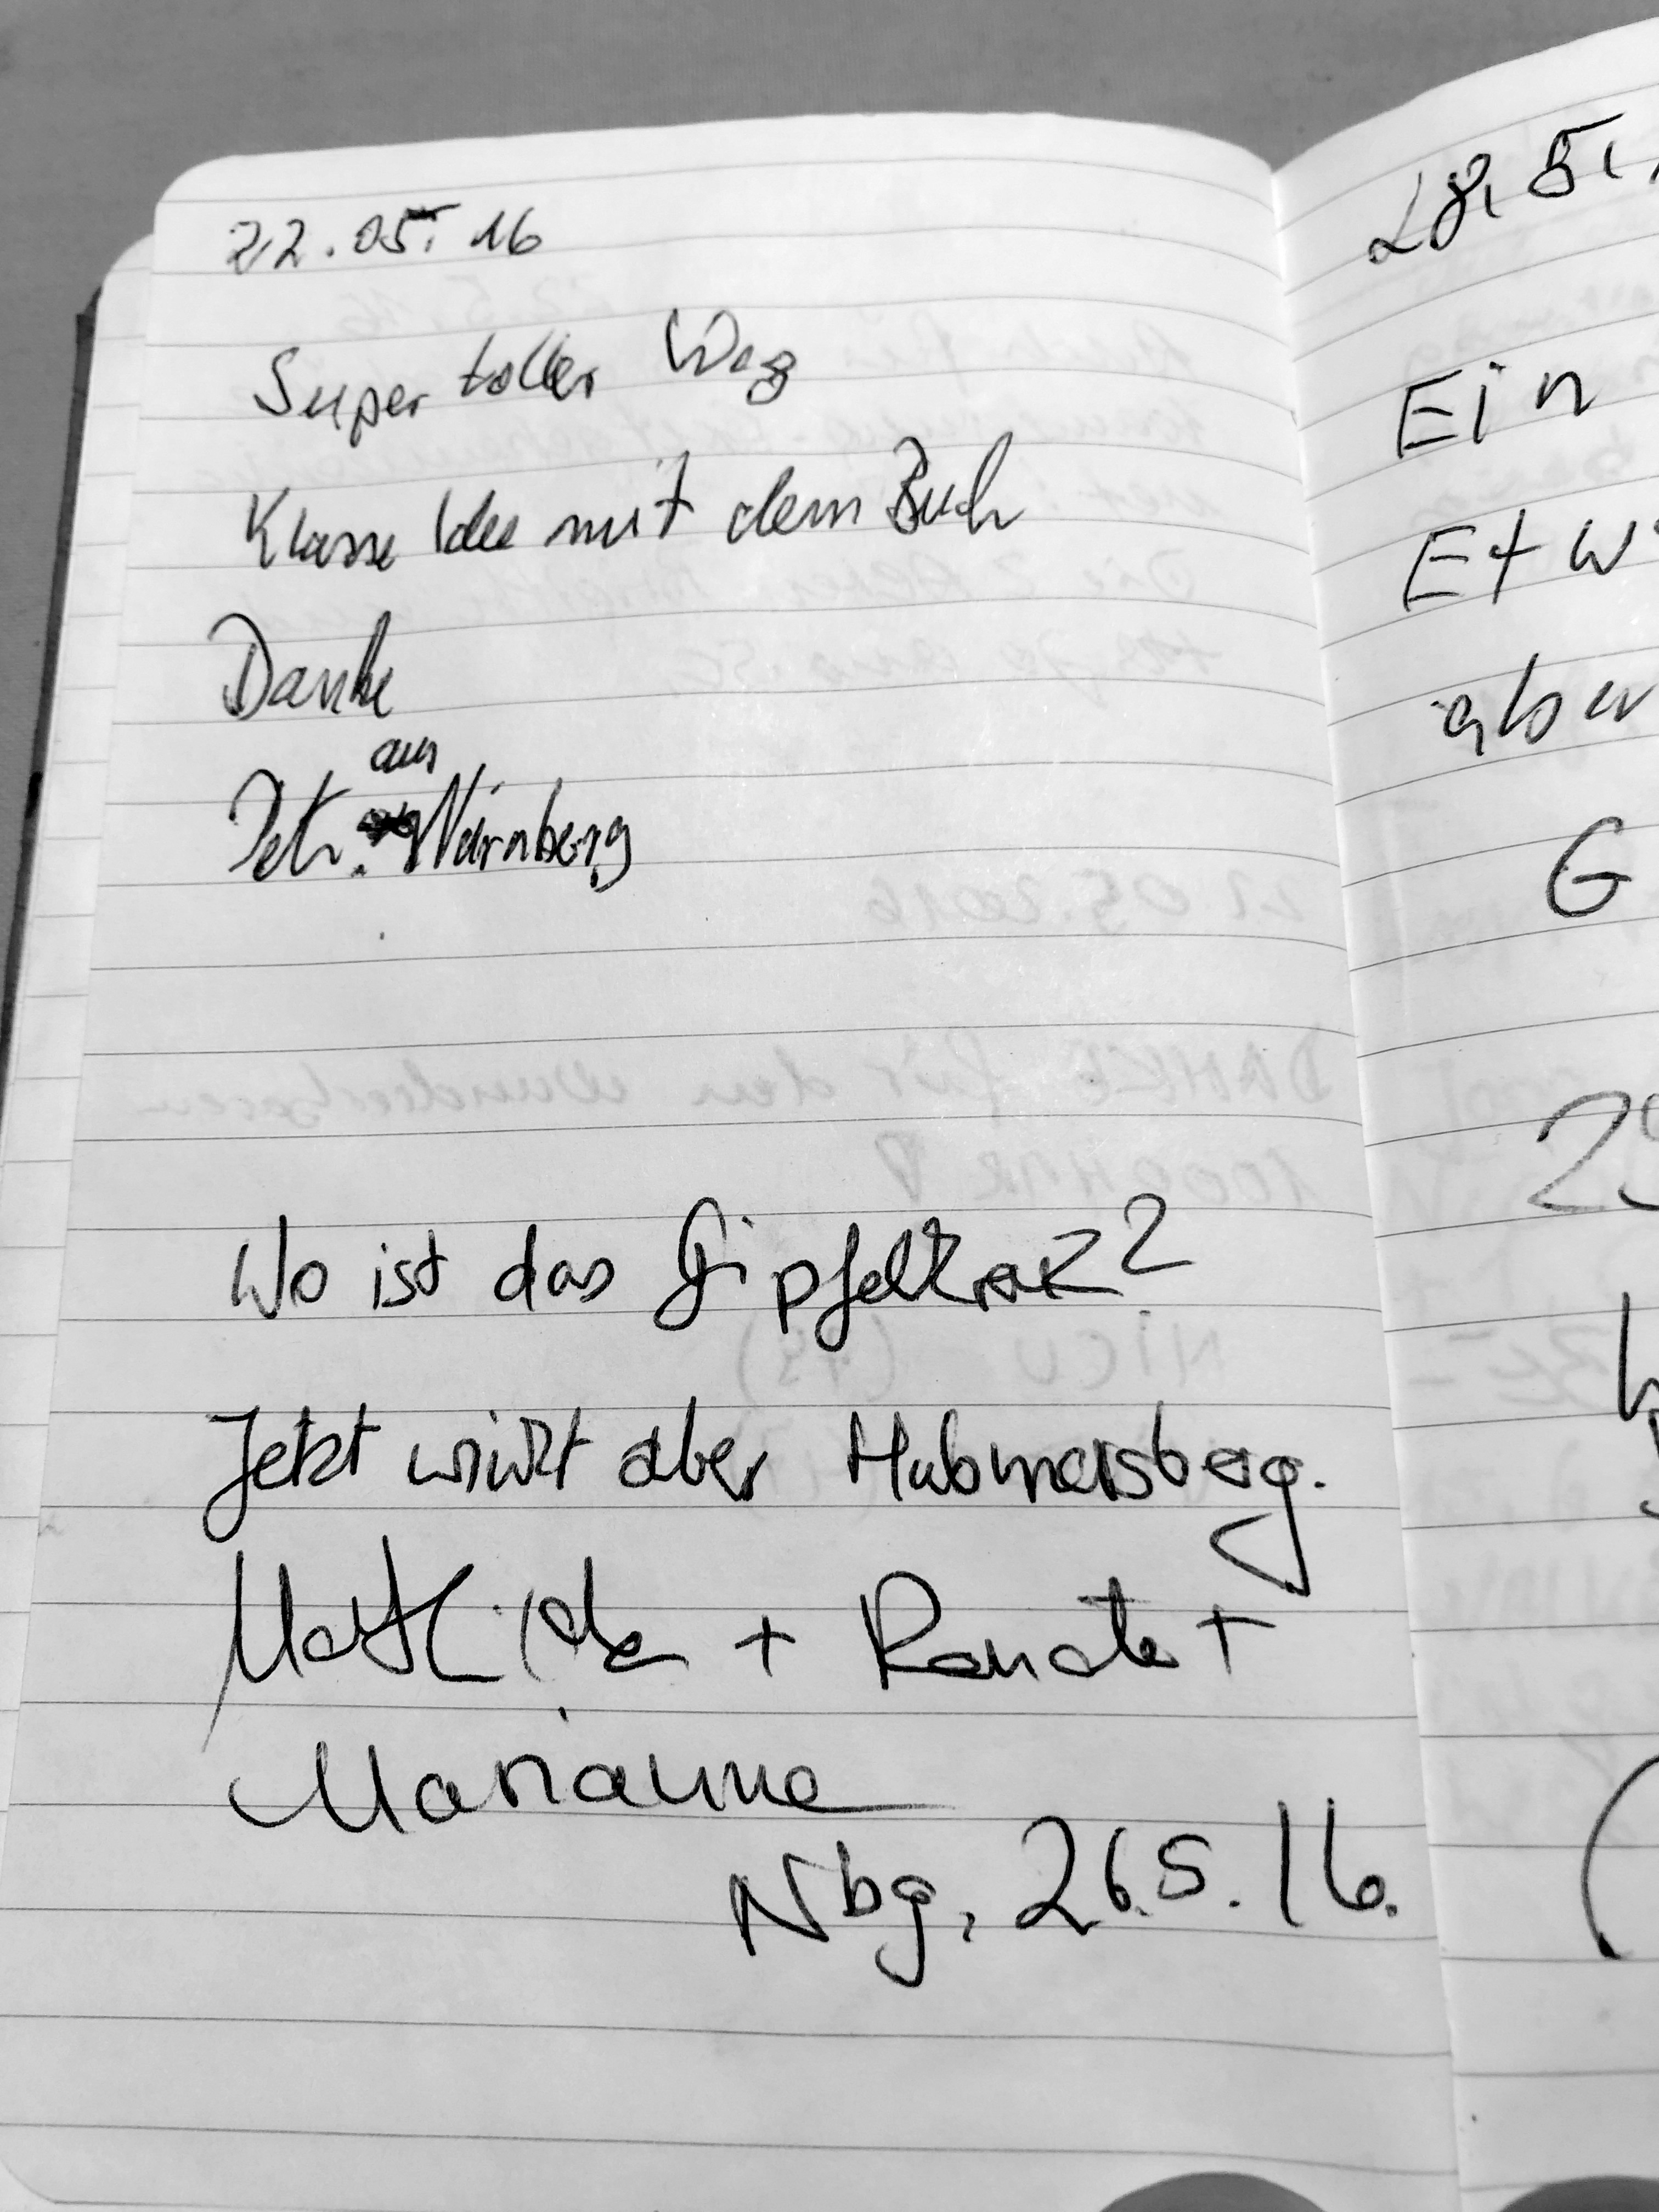 22.05.16
Super toller Weg
Klasse Idee mit dem Buch
Danke
aus
Nürnberg
Wo ist das Gipfelkreuz?
Jetzt wirkt aber Hubmersberg.
Mathilde + Renate +
Marianne
Nbg, 26.5.16.
28.5.
Ein
Etw
aber
G